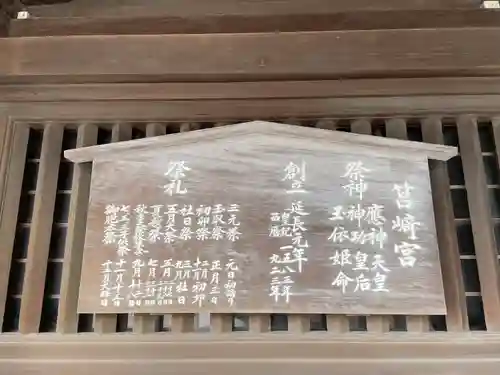 筥崎宮
祭神
應神天皇
神功皇后
玉依姫命
創立
延長元年
皇紀一五八三年
西暦九二三年
祭礼
三元祭 元日初詣り
玉取祭 正月三日
初卯祭 十二月初卯
社日祭 三月九月社日
五月大祭 五月
夏越祭 七月
秋季大祭放生会 九月十二
七五三 十一月十五日
御胞衣祭 十二月大晦日